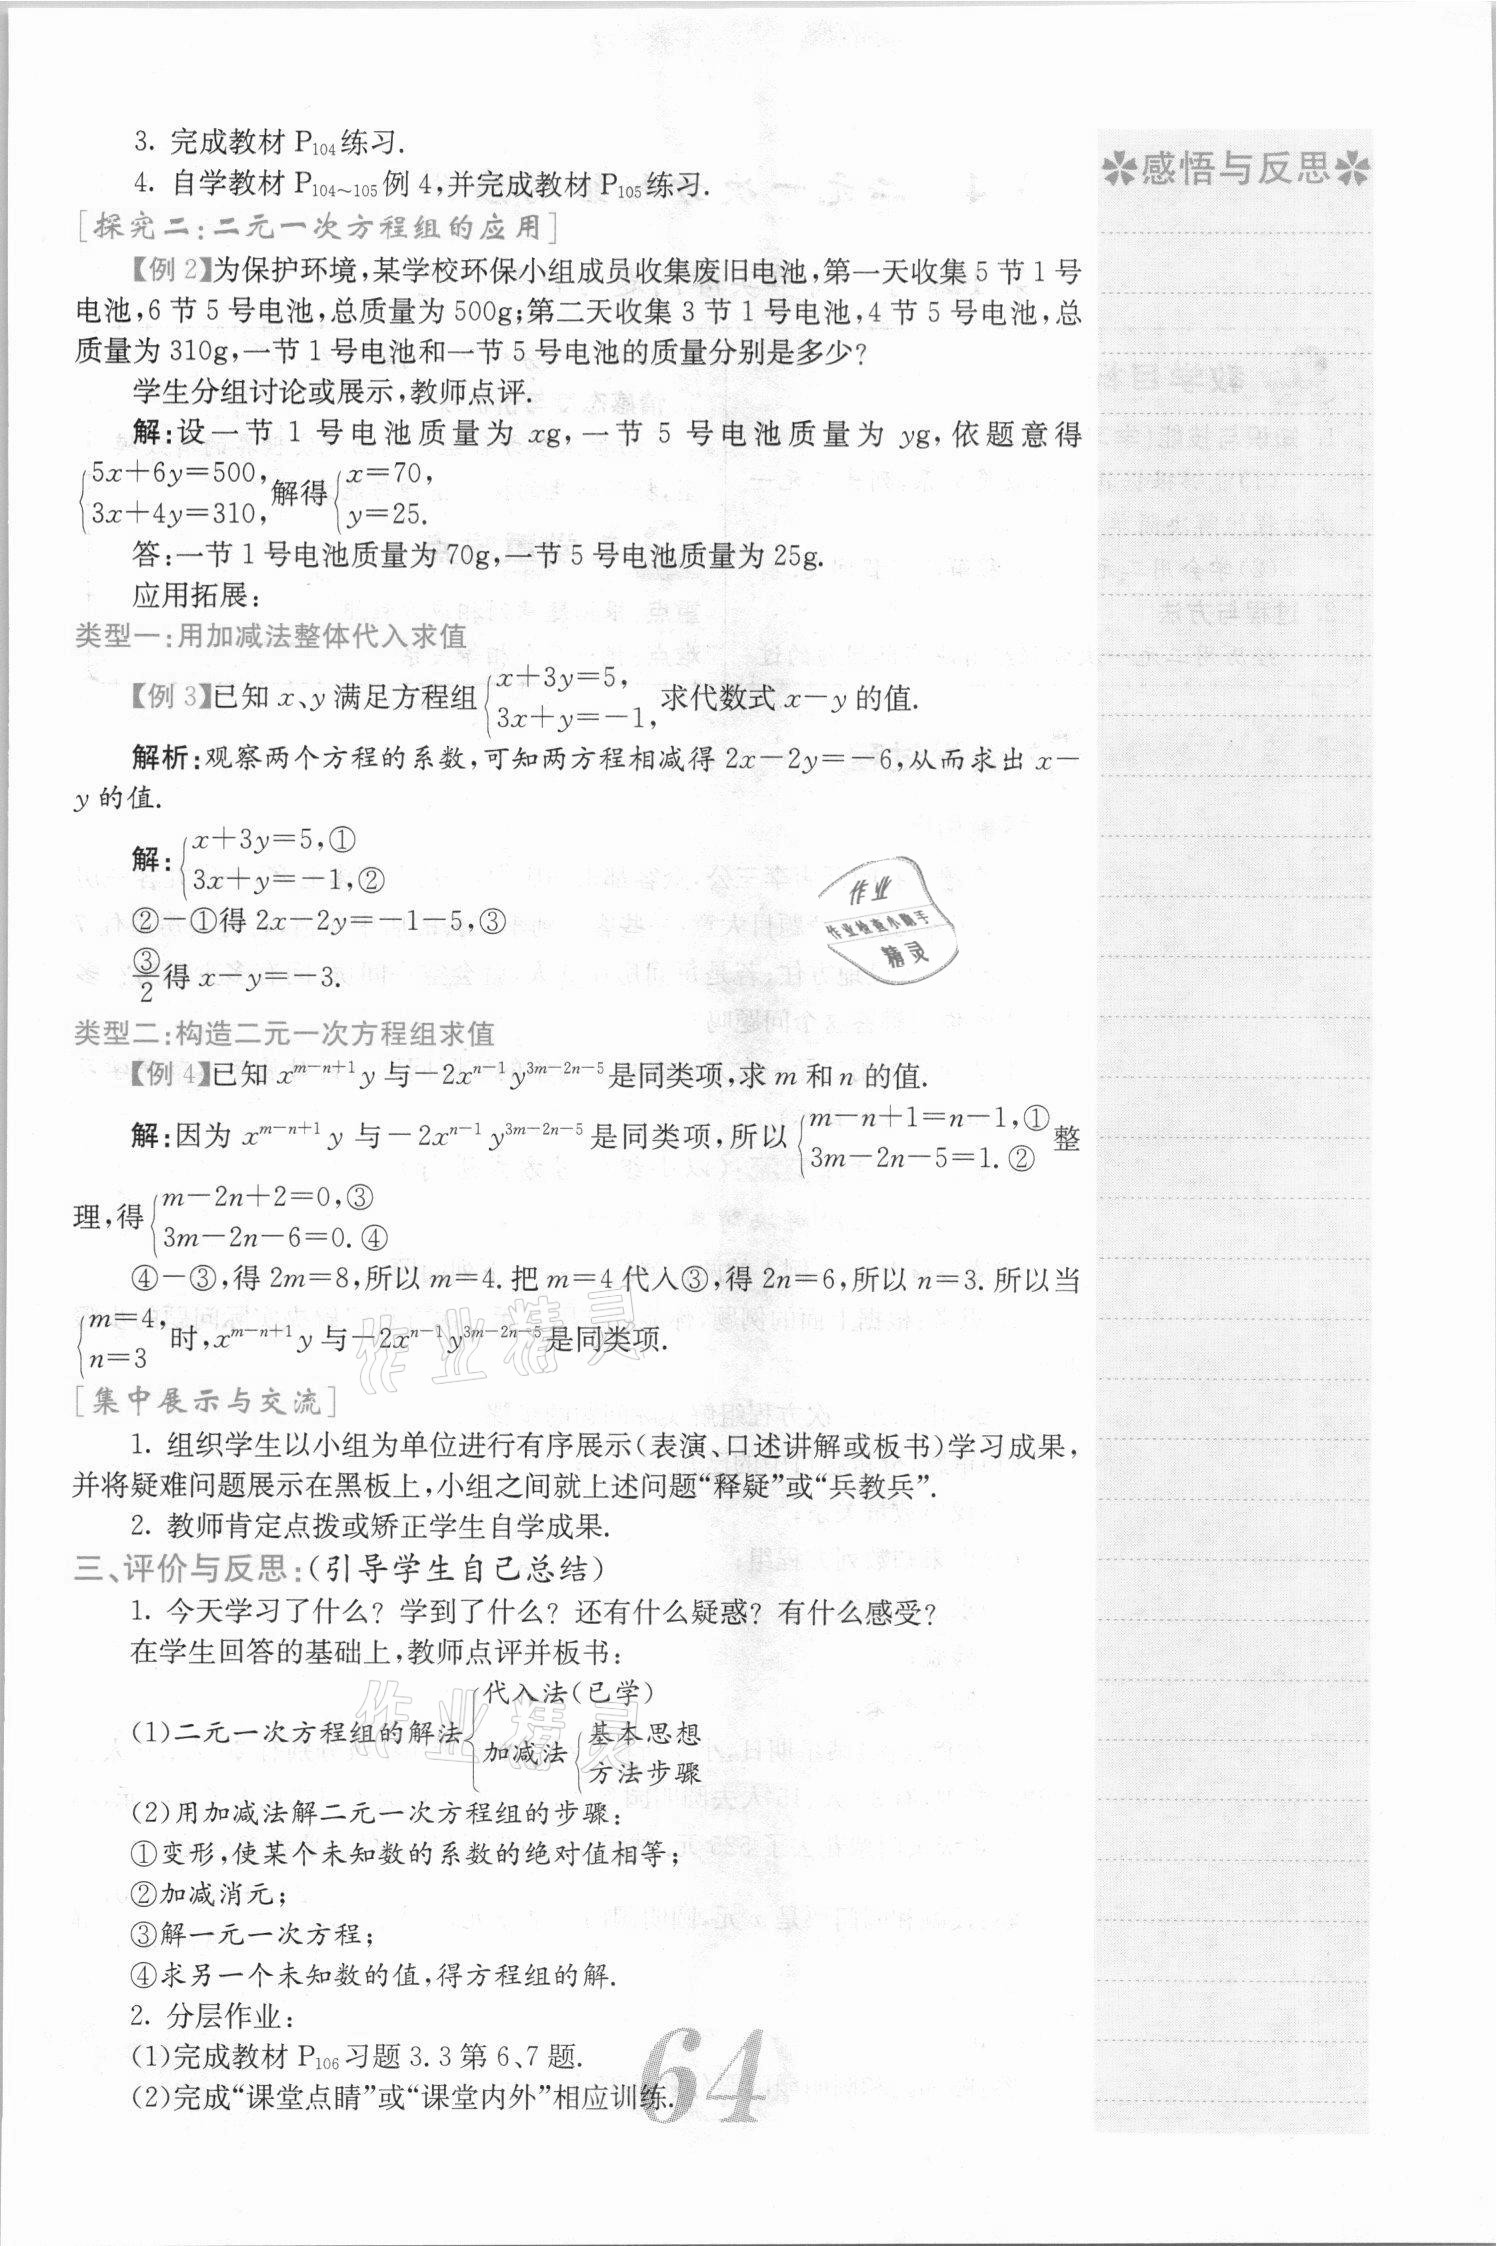 3. 完成教材 P104练习.
4. 自学教材 P104~105例 4,并完成教材 P105练习.
[探究二:二元一次方程组的应用]
【例 2】为保护环境,某学校环保小组成员收集废旧电池,第一天收集 5 节 1 号
电池,6 节 5 号电池,总质量为 500g;第二天收集 3 节 1 号电池,4 节 5 号电池,总
质量为 310g,一节 1 号电池和一节 5 号电池的质量分别是多少?
学生分组讨论或展示,教师点评.
解:设一节 1 号电池质量为 xg,一节 5 号电池质量为 yg,依题意得
{5x+6y=500, 3x+4y=310, 解得 {x=70, y=25.
答:一节 1 号电池质量为 70g,一节 5 号电池质量为 25g.
应用拓展:
类型一:用加减法整体代入求值
【例 3】已知 x、y 满足方程组 {x+3y=5, 3x+y=-1, 求代数式 x-y 的值.
解析:观察两个方程的系数,可知两方程相减得 2x-2y=-6,从而求出 x-
y 的值.
解: {x+3y=5,① 3x+y=-1,②
②-①得 2x-2y=-1-5,③
③/2得 x-y=-3.
类型二:构造二元一次方程组求值
【例 4】已知 x^{m-n+1}y 与-2x^{n-1}y^{3m-2n-5}是同类项,求 m 和 n 的值.
解:因为 x^{m-n+1}y 与-2x^{n-1}y^{3m-2n-5}是同类项,所以 {m-n+1=n-1,① 3m-2n-5=1.② 整
理,得 {m-2n+2=0,③ 3m-2n-6=0.④
④-③,得 2m=8,所以 m=4. 把 m=4 代入③,得 2n=6,所以 n=3. 所以当
{m=4, n=3 时,x^{m-n+1}y 与-2x^{n-1}y^{3m-2n-5}是同类项.
[集中展示与交流]
1. 组织学生以小组为单位进行有序展示(表演、口述讲解或板书)学习成果,
并将疑难问题展示在黑板上,小组之间就上述问题“释疑”或“兵教兵”.
2. 教师肯定点拨或矫正学生自学成果.
三、评价与反思:(引导学生自己总结)
1. 今天学习了什么? 学到了什么? 还有什么疑惑? 有什么感受?
在学生回答的基础上,教师点评并板书:
(1)二元一次方程组的解法 {代入法(已学) 加减法 {基本思想 方法步骤
(2)用加减法解二元一次方程组的步骤:
①变形,使某个未知数的系数的绝对值相等;
②加减消元;
③解一元一次方程;
④求另一个未知数的值,得方程组的解.
2. 分层作业:
(1)完成教材 P106习题 3.3 第 6、7 题.
(2)完成“课堂点睛”或“课堂内外”相应训练.
64
感悟与反思
作业
作业检查小助手
精灵
作业精灵
作业精灵